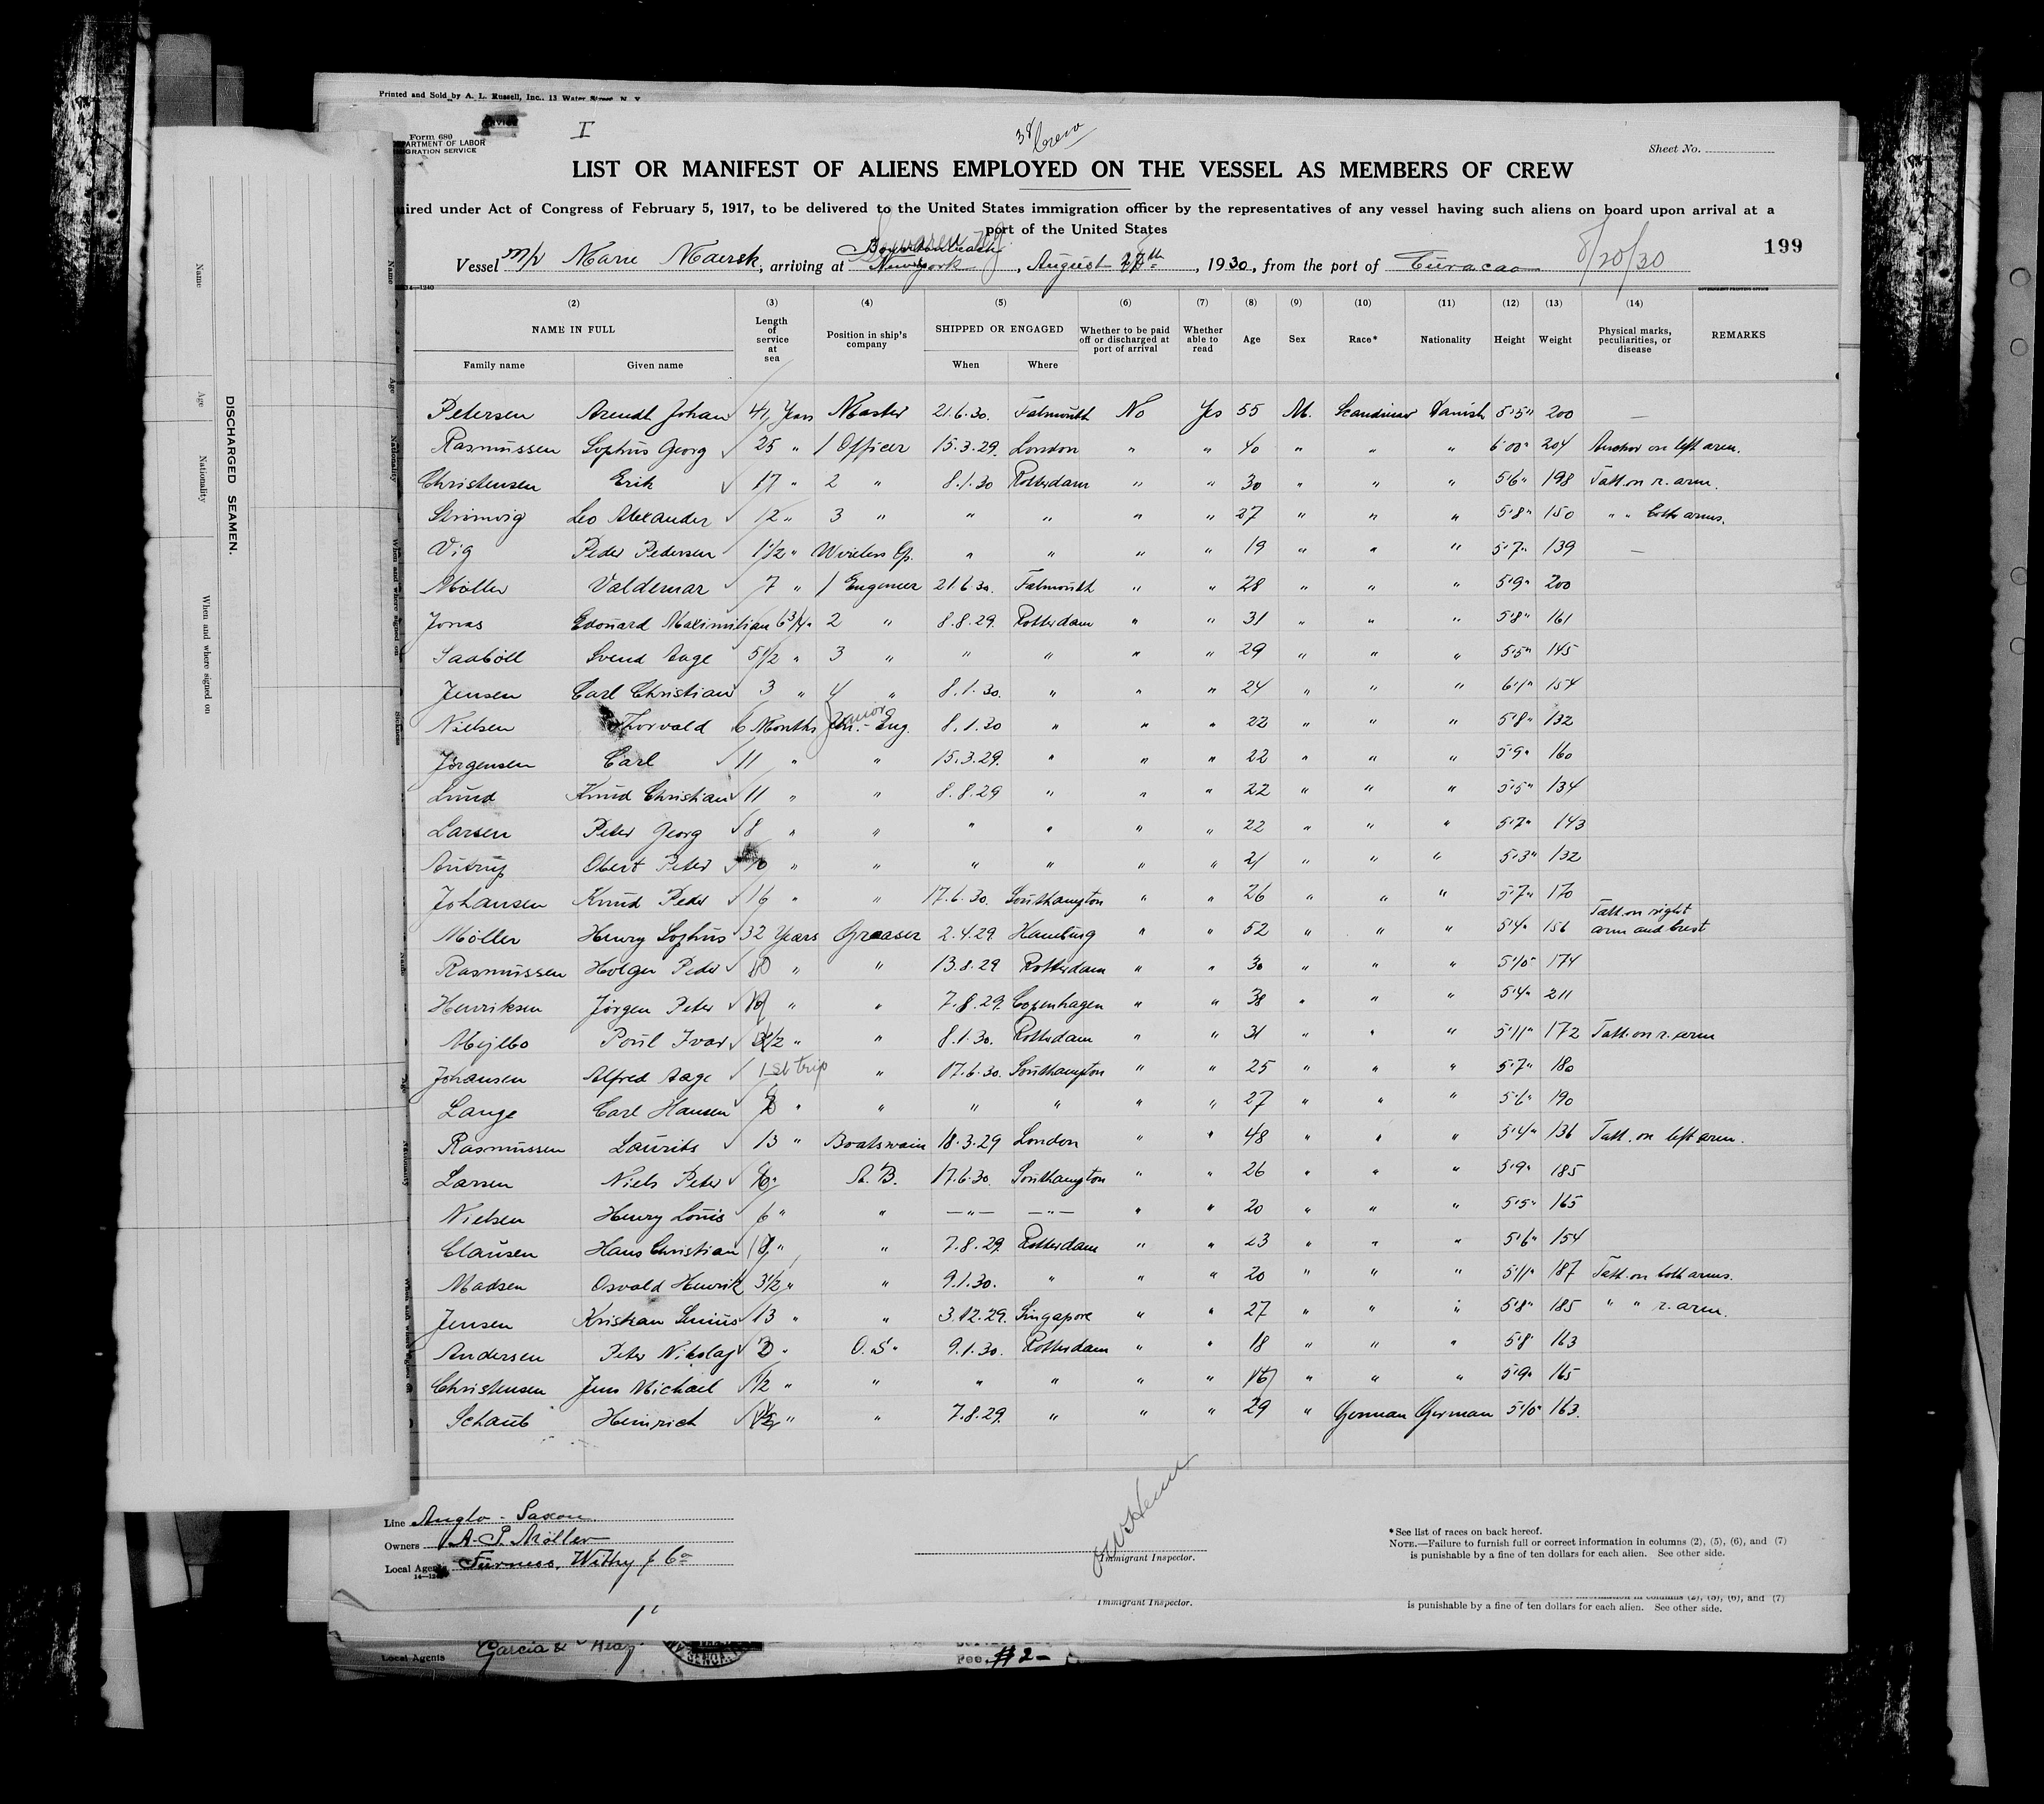 Printed and Sold by A. L. Russell, Inc., 13 Water Street, N. Y.
Form 680
DEPARTMENT OF LABOR
IMMIGRATION SERVICE
I
38 Crew
Sheet No.
LIST OR MANIFEST OF ALIENS EMPLOYED ON THE VESSEL AS MEMBERS OF CREW
uired under Act of Congress of February 5, 1917, to be delivered to the United States immigration officer by the representatives of any vessel having such aliens on board upon arrival at a
port of the United States
199
Vessel M/V Marie Maersk, arriving at New York, August th, 1930, from the port of Curacao 8/20/30
(2) (3) (4) (5) (6) (7) (8) (9) (10) (11) (12) (13) (14)
NAME IN FULL Length of service at sea Position in ship's company SHIPPED OR ENGAGED Whether to be paid off or discharged at port of arrival Whether able to read Age Sex Race* Nationality Height Weight Physical marks, peculiarities, or disease REMARKS
Family name Given name When Where
Petersen Arendt Johan 41 Years Master 21.6.30. Falmouth No Yes 55 M. Scandinav Danish 5'5" 200 —
Rasmussen Sophus Georg 25 " 1 Officer 15.3.29. London " " 40 " " " 6'00" 204 Anchor on left arm.
Christensen Erik 17 " 2 " 8.1.30 Rotterdam " " 30 " " " 5'6" 198 Tatt. on r. arm.
Leo Alexander 12 " 3 " " " " " 27 " " " 5'8" 150 " " both arms.
Vig Peder Pedersen 1 1/2 " Wireless Op. " " " " 19 " " " 5'7" 139 —
Møller Valdemar 7 " 1 Engineer 21.6.30. Falmouth " " 28 " " " 5'9" 200
Jonas Edouard Maximilian 6 3/4 " 2 " 8.8.29. Rotterdam " " 31 " " " 5'8" 161
Saaböll Svend Aage 5 1/2 " 3 " " " " " 29 " " " 5'5" 145
Jensen Carl Christian 3 " 4 " 8.1.30. " " " 24 " " " 6'1" 154
Nielsen Thorvald 6 Months Jun. Eng. 8.1.30 " " " 22 " " " 5'8" 132
Jörgensen Carl 11 " " 15.3.29. " " " 22 " " " 5'9" 160
Lund Knud Christian 11 " " 8.8.29 " " " 22 " " " 5'5" 134
Larsen Peter Georg 8 " " " " " " 22 " " " 5'7" 143
Autrup Obert Peter 10 " " " " " " 21 " " " 5'3" 132
Johansen Knud Peder 16 " " 17.6.30. Southampton " " 26 " " " 5'7" 170
Møller Henry Sophus 32 Years Greaser 2.4.29. Hamburg " " 52 " " " 5'4" 156 Tatt. on right arm and brest
Rasmussen Holger Peder " " 13.8.29 Rotterdam " " 30 " " " 5'10" 174
Henriksen Jörgen Peter " " 7.8.29. Copenhagen " " 38 " " " 5'4" 211
Mejlbo Poul Ivar " " 8.1.30. Rotterdam " " 31 " " " 5'11" 172 Tatt. on r. arm
Johansen Alfred Aage 1st trip " 17.6.30. Southampton " " 25 " " " 5'7" 180
Lange Carl Hansen " " " " " " 27 " " " 5'6" 190
Rasmussen Laurits 13 " Boatswain 18.3.29 London " " 48 " " " 5'4" 136 Tatt. on left arm.
Larsen Niels Peter " A.B. 17.6.30. Southampton " " 26 " " " 5'9" 185
Nielsen Henry Louis 6 " " —"— —"— " " 20 " " " 5'5" 165
Clausen Hans Christian " " 7.8.29. Rotterdam " " 23 " " " 5'6" 154
Madsen Osvald Henrik 3 1/2 " " 9.1.30. " " " 20 " " " 5'11" 187 Tatt. on both arms.
Jensen Kristian 13 " " 3.12.29. Singapore " " 27 " " " 5'8" 185 " " r. arm.
Andersen Peter Nikolaj " O.S. 9.1.30. Rotterdam " " 18 " " " 5'8 163
Christensen Jens Michael 1/2 " " " " " " " " " 5'9" 165
Schaub Heinrich " " 7.8.29. " " " 29 " German German 5'10" 163.
Line Anglo-Saxon
Owners A. P. Møller
Local Agents Furness, Withy & Co
Immigrant Inspector.
*See list of races on back hereof.
NOTE.—Failure to furnish full or correct information in columns (2), (5), (6), and (7)
is punishable by a fine of ten dollars for each alien. See other side.
Immigrant Inspector.
is punishable by a fine of ten dollars for each alien. See other side.
Local Agents Garcia &
Fee, $2-
DISCHARGED SEAMEN.
Name
Age
Nationality
When and where signed on